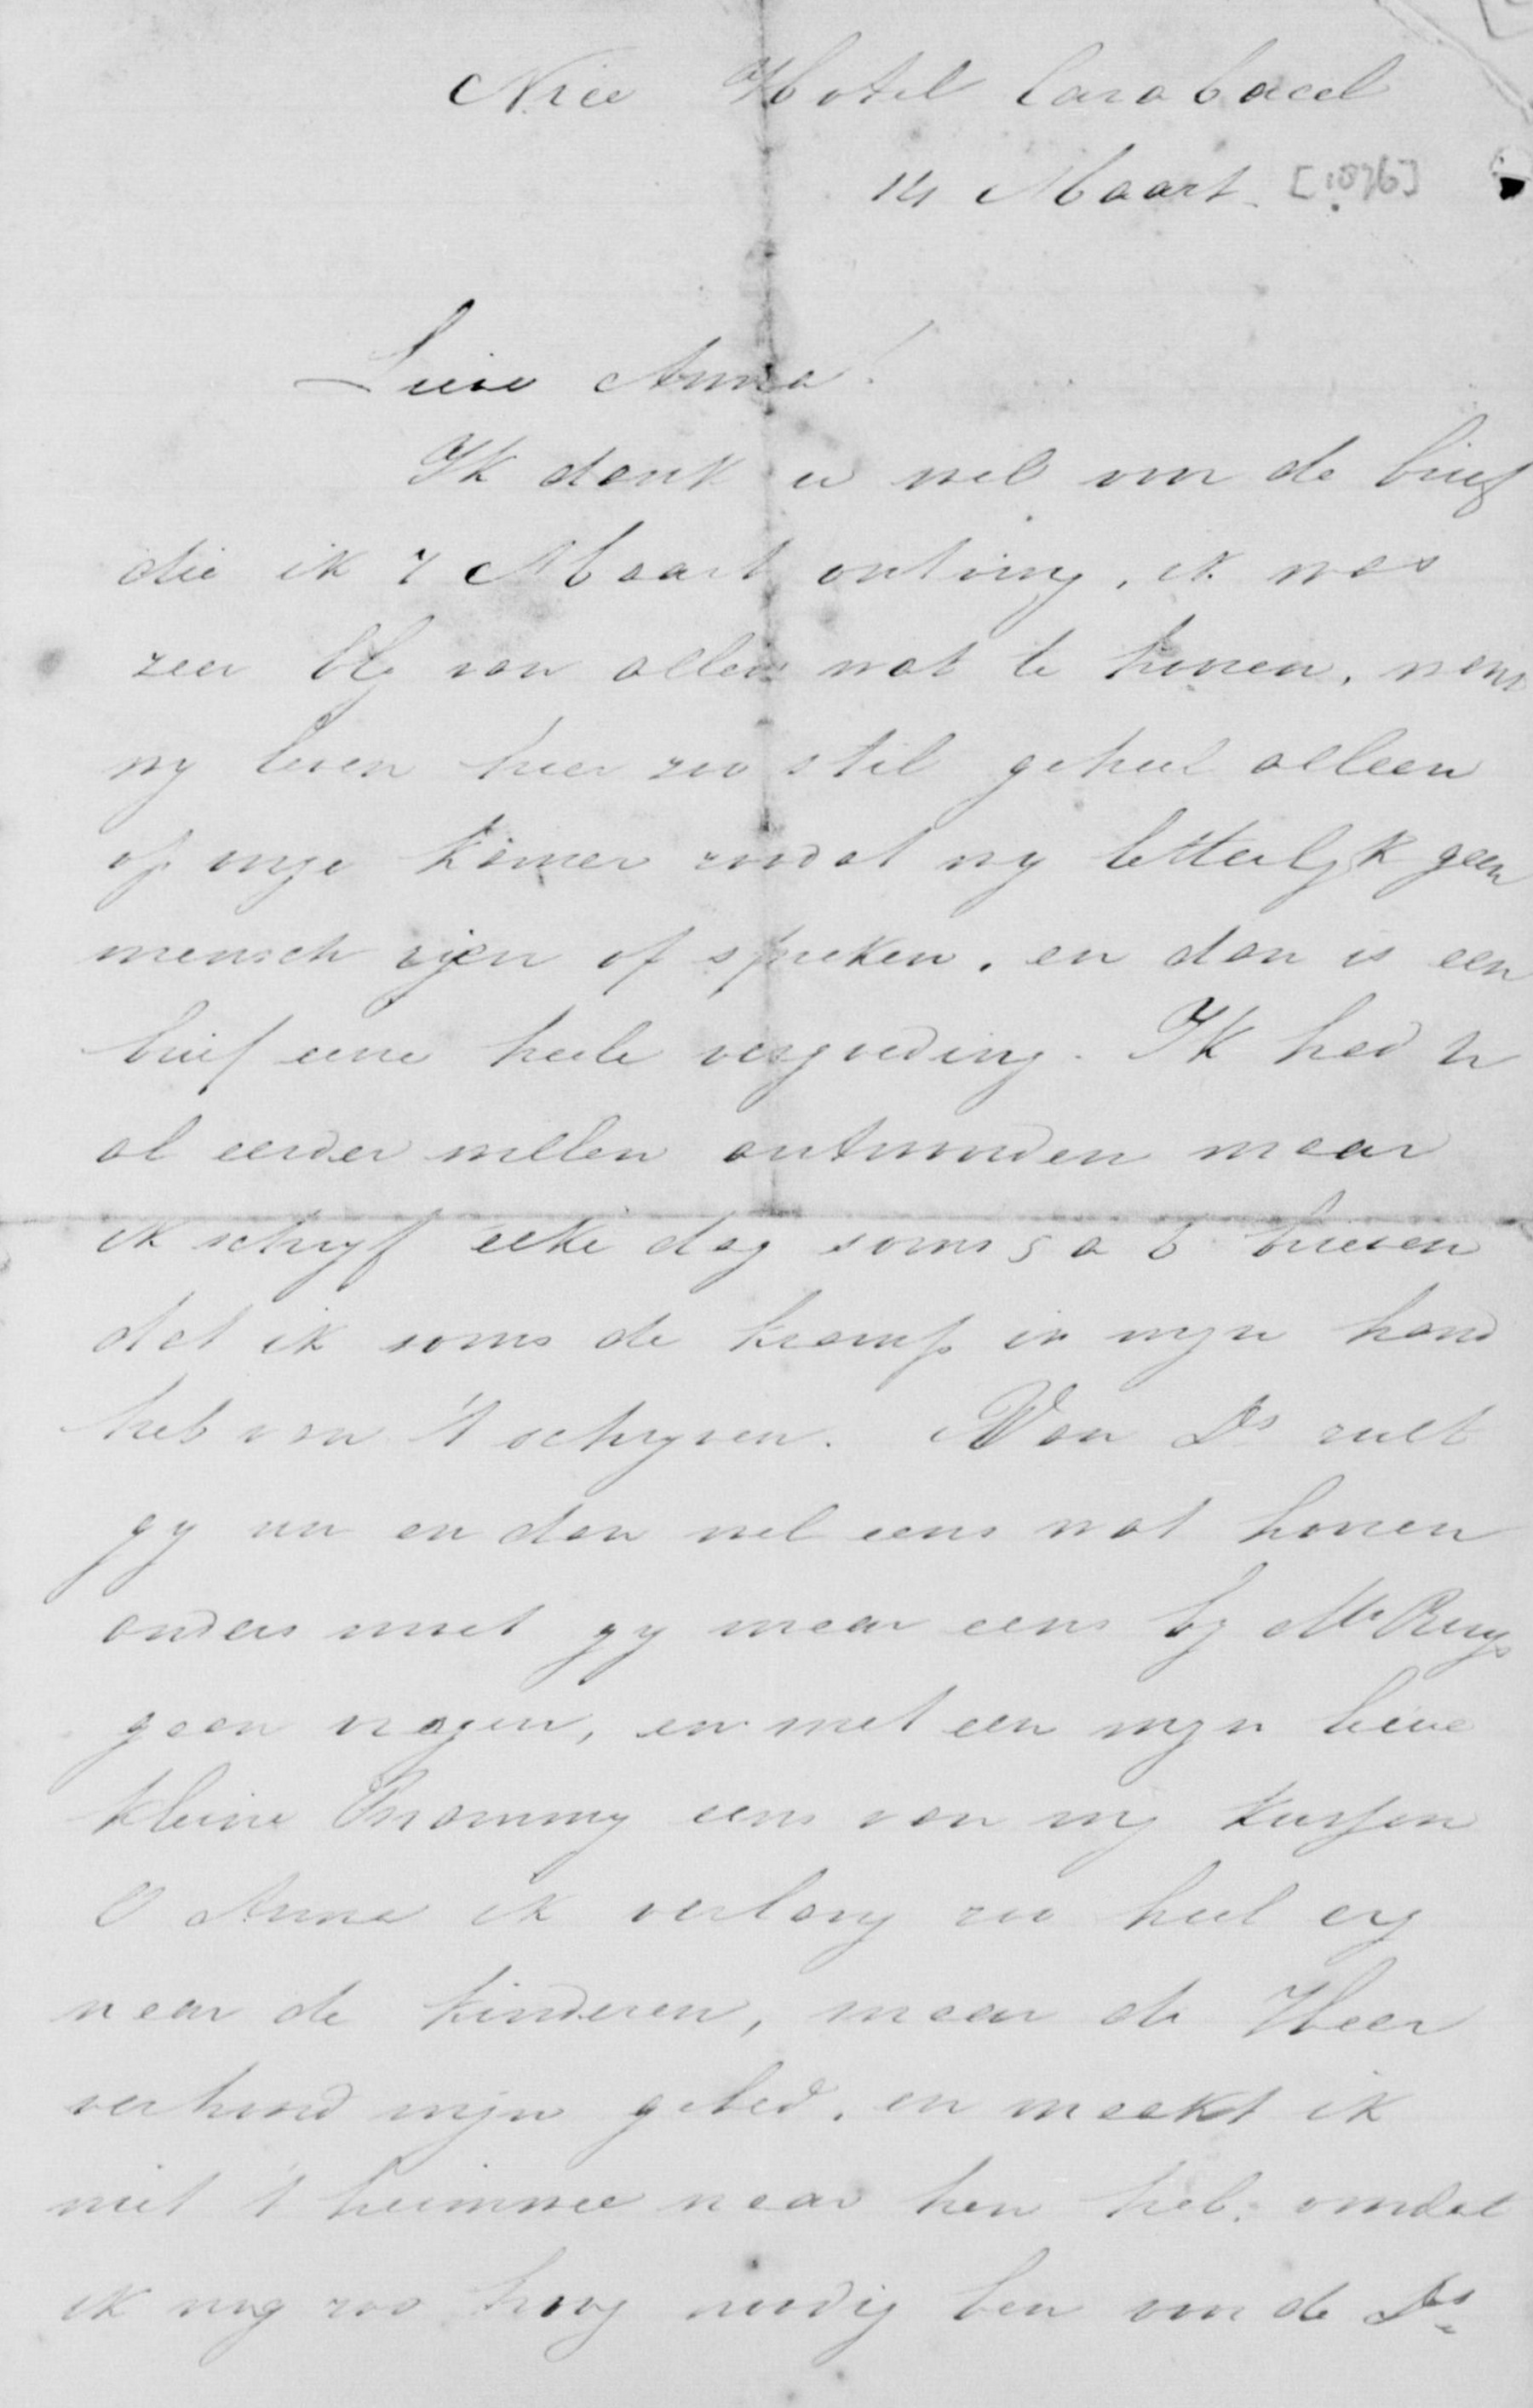 Nice Hotel Carabacel
14 Maart [1876]
Lieve Anna!
Ik dank u wel voor de brief
die ik 7 Maart ontving, ik was
zeer bly van allen wat te hooren, want
wy leven hier zoo stil geheel alleen
op onze kamer zoodat wy letterlyk geen
mensch zien of spreken, en dan is een
brief eene heele vergoeding. Ik had u
al eerder willen antwoorden maar
ik schryf elke dag soms 5 a 6 brieven
dat ik soms de kramp in myn hand
heb van 't schryven. Van Ds zult
gy nu en dan wel eens wat hooren
anders moet gy maar eens by Mr Ruys
gaan vragen, en met een myn lieve
kleine Trammy eens van my kussen
O Anna ik verlang zoo heel erg
naar de kinderen, maar de Heer
verhoord mijn gebed, en maakt ik
niet 't heimwee naar hen heb, omdat
ik nog zoo hoog noodig ben voor de Ds